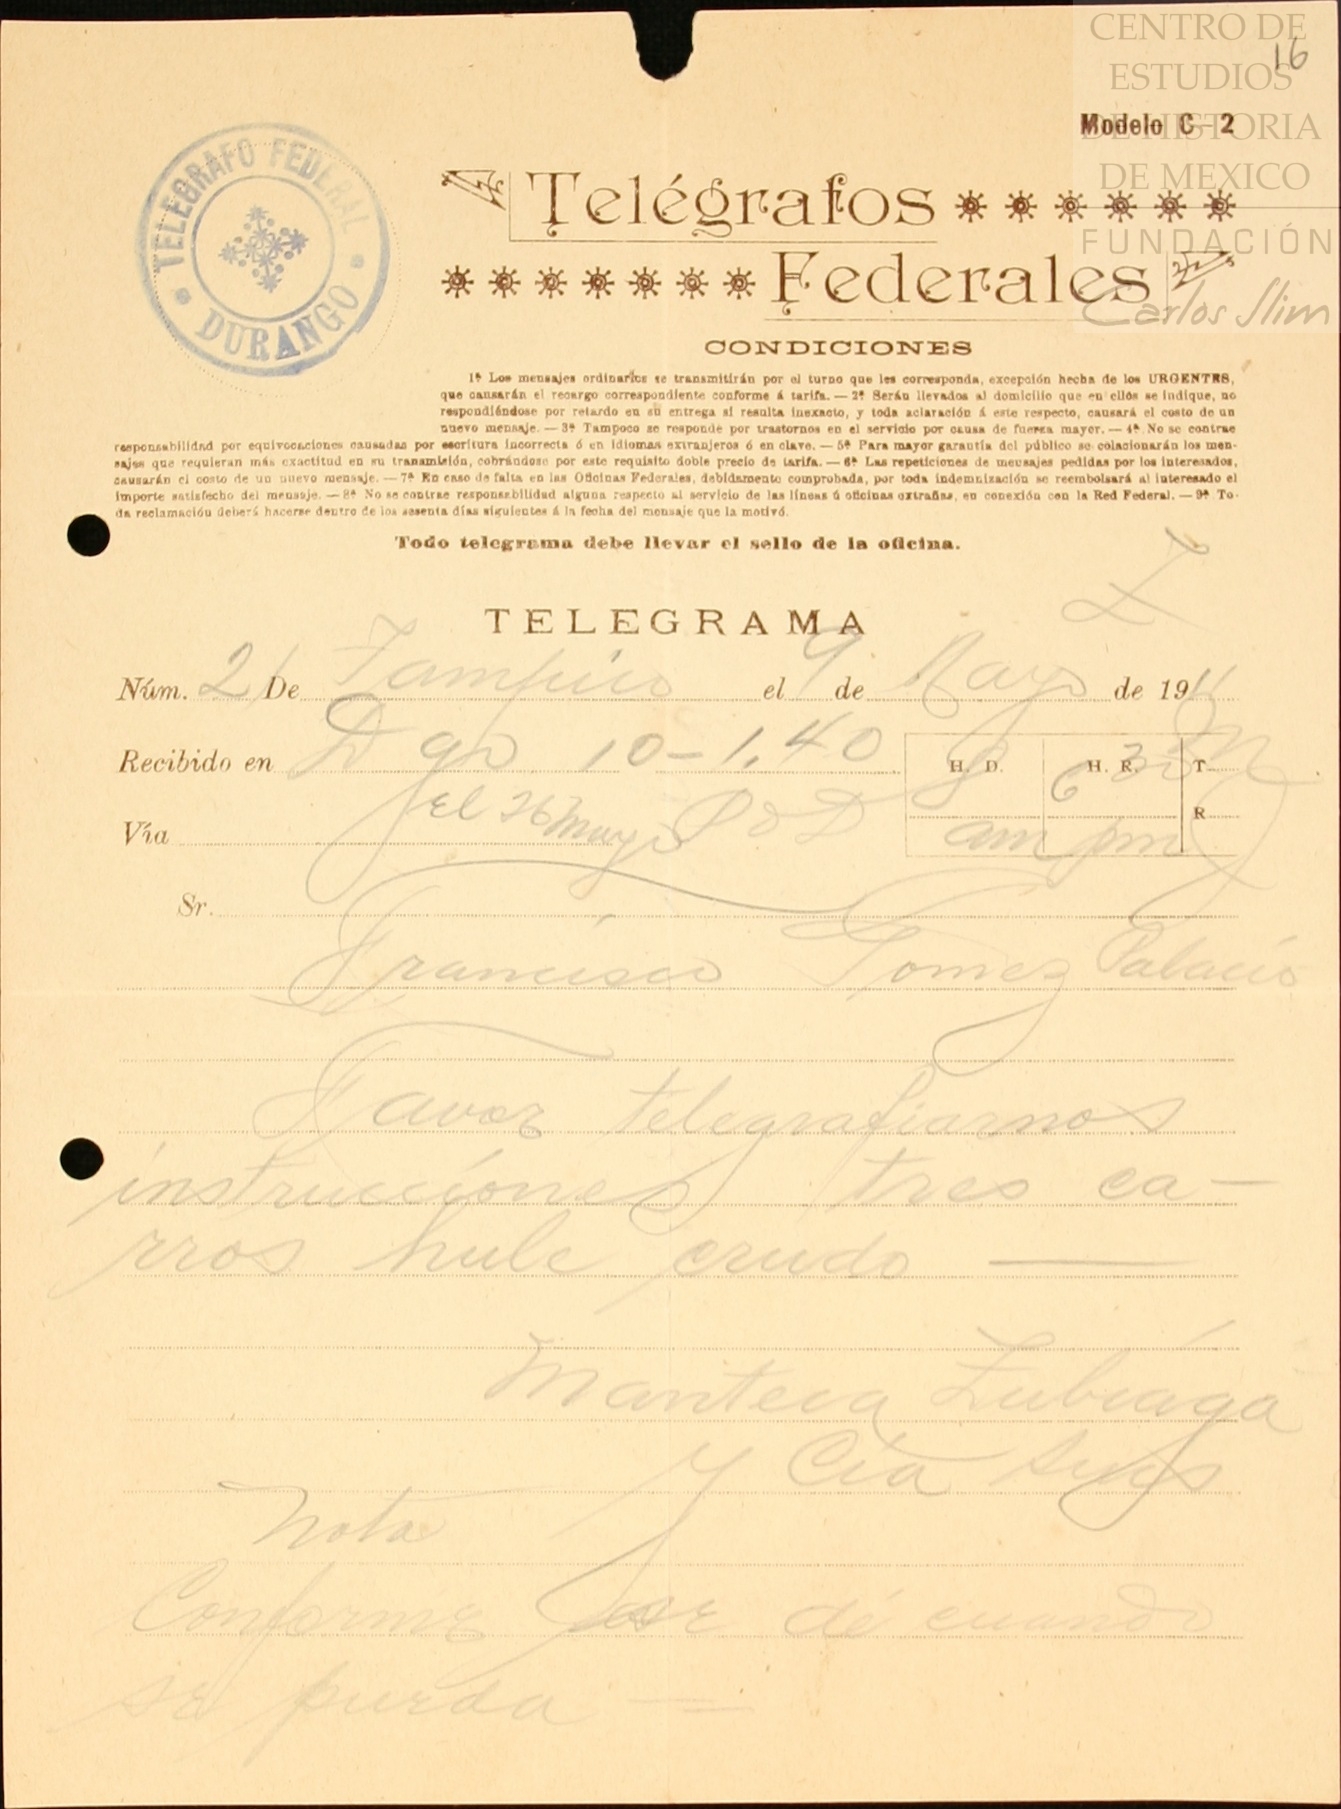 CENTRO DE
ESTUDIOS
DE HISTORIA
DE MEXICO
FUNDACIÓN
Carlos Slim
16
Modelo C - 2
TELEGRAFO FEDERAL
DURANGO
Telégrafos
Federales
CONDICIONES
1ª Los mensajes ordinarios se transmitirán por el turno que les corresponda, excepción hecha de los URGENTES,
que causarán el recargo correspondiente conforme á tarifa. — 2ª Serán llevados al domicilio que en ellos se indique, no
respondiéndose por retardo en su entrega si resulta inexacto, y toda aclaración á este respecto, causará el costo de un
nuevo mensaje. — 3ª Tampoco se responde por trastornos en el servicio por causa de fuerza mayor. — 4ª No se contrae
responsabilidad por equivocaciones causadas por escritura incorrecta ó en idiomas extranjeros ó en clave. — 5ª Para mayor garantía del público se colacionarán los men-
sajes que requieran más exactitud en su transmisión, cobrándose por este requisito doble precio de tarifa. — 6ª Las repeticiones de mensajes pedidas por los interesados,
causarán el costo de un nuevo mensaje. — 7ª En caso de falta en las Oficinas Federales, debidamente comprobada, por toda indemnización se reembolsará al interesado el
importe satisfecho del mensaje. — 8ª No se contrae responsabilidad alguna respecto al servicio de las líneas ú oficinas extrañas, en conexión con la Red Federal. — 9ª To-
da reclamación deberá hacerse dentro de los sesenta días siguientes á la fecha del mensaje que la motivó.
Todo telegrama debe llevar el sello de la oficina.
TELEGRAMA
Núm. 21 De Tampico el 9 de Mayo de 1911
Recibido en Dgo 10-1.40 H. D. 8 H. R. 6 35 T. M
Vía el 26 Mayo P o D am pm R
Sr.
Francisco Gomez Palacio
Favor telegrafiarnos
instrucciones tres ca-
rros hule crudo —
Manteca Zubiaga
y Cia Sucs
Nota
Conforme dé cuando
se pueda —